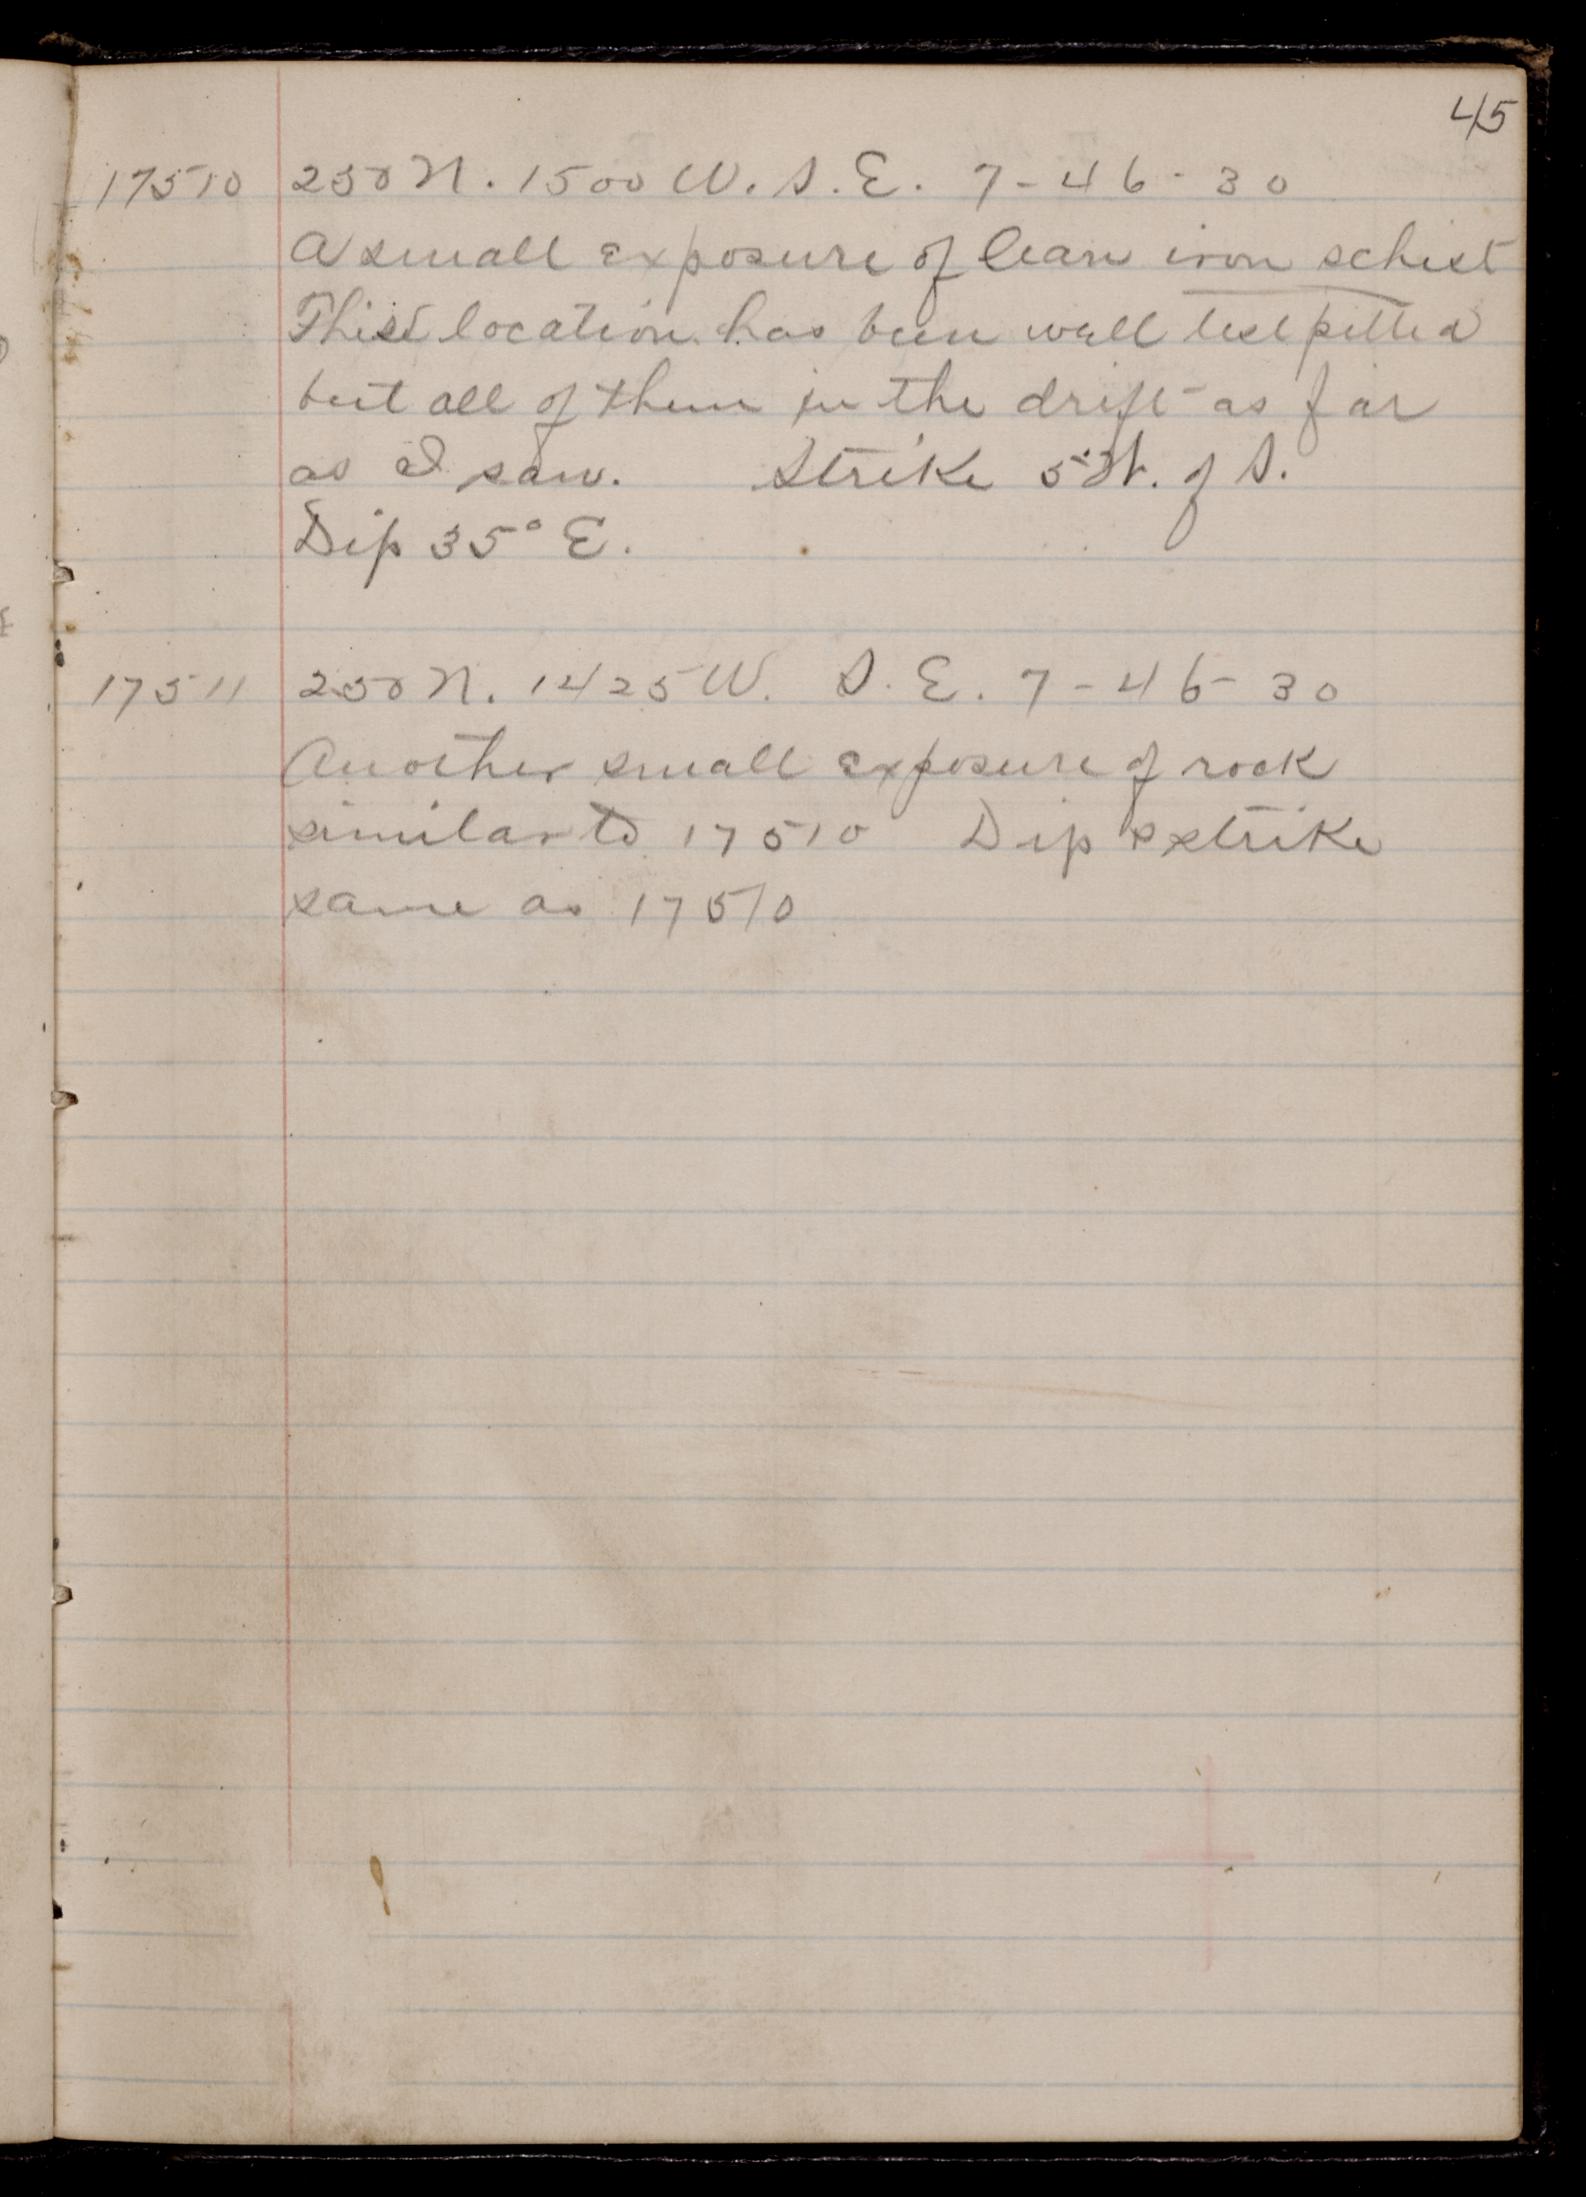 45
17510 250 N. 1500 W. S. E. 7-46-30
A small exposure of lean iron schist
This location has been well test pitted
but all of them in the drift as far
as I saw. Strike 5° W. of S.
Dip 35° E.
17511 250 N. 1425 W. S. E. 7-46-30
Another small exposure of rock
similar to 17510 Dip & strike
same as 17510